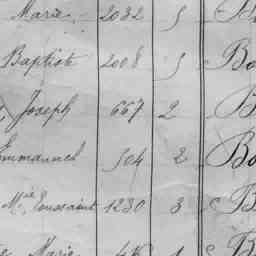 Marie 2032 5
Baptiste 2008 5
Joseph 667 2
Emmanuel 504 2
Mie Toussaint 1230 3
Marie